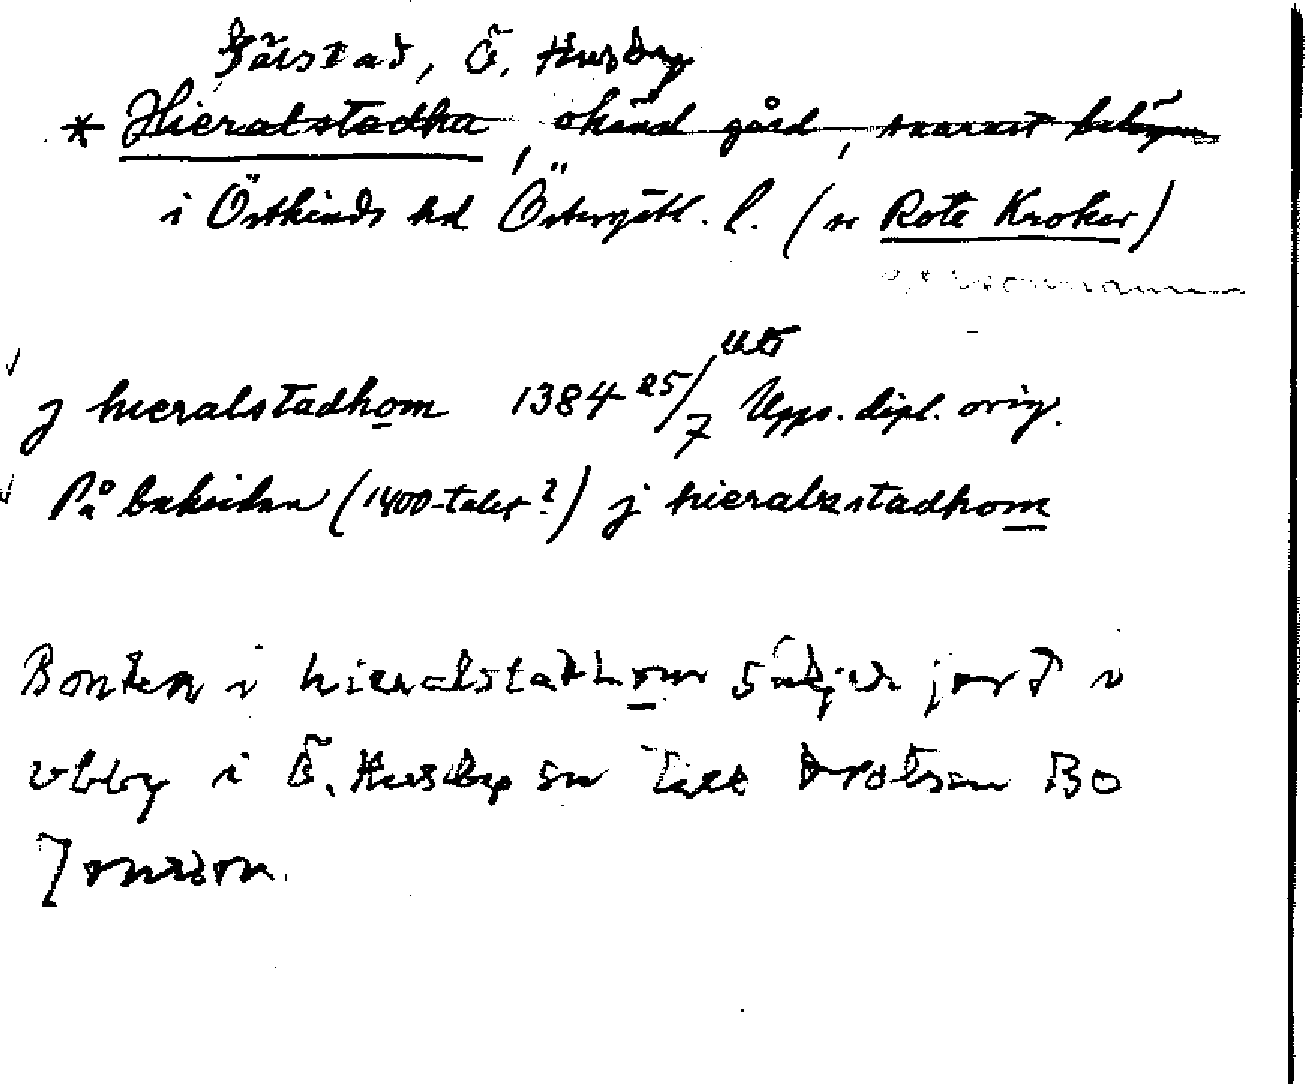 Järstad, Ö. Husby
* Hieralstadha, okänd gård, snarast belägen
i Östkinds hd Östergötl. l. (se Rote Kroker)
j hieralstadhom 1384 25/7 Upps. dipl. orig.
På baksidan (1400-talet?) j hieralzstadhom
Bonden i hieralstadhom säljer jord i
vbby i Ö. Husby sn till drotsen Bo
Jonsson.